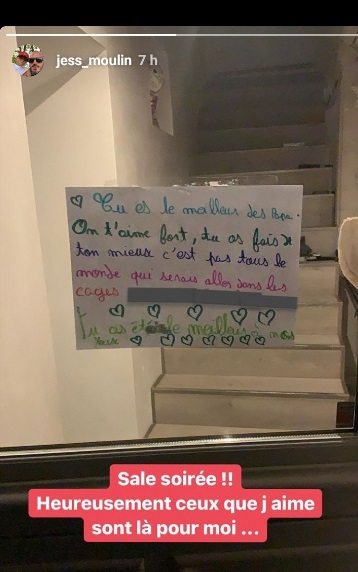 jess_moulin 7 h
Tu es le meilleur des Papa.
On t'aime fort, tu as fais de
ton mieux c'est pas tous le
monde qui serais aller dans les
cages
Tu as été le meilleur à nos
yeux
Sale soirée !!
Heureusement ceux que j aime
sont là pour moi ...